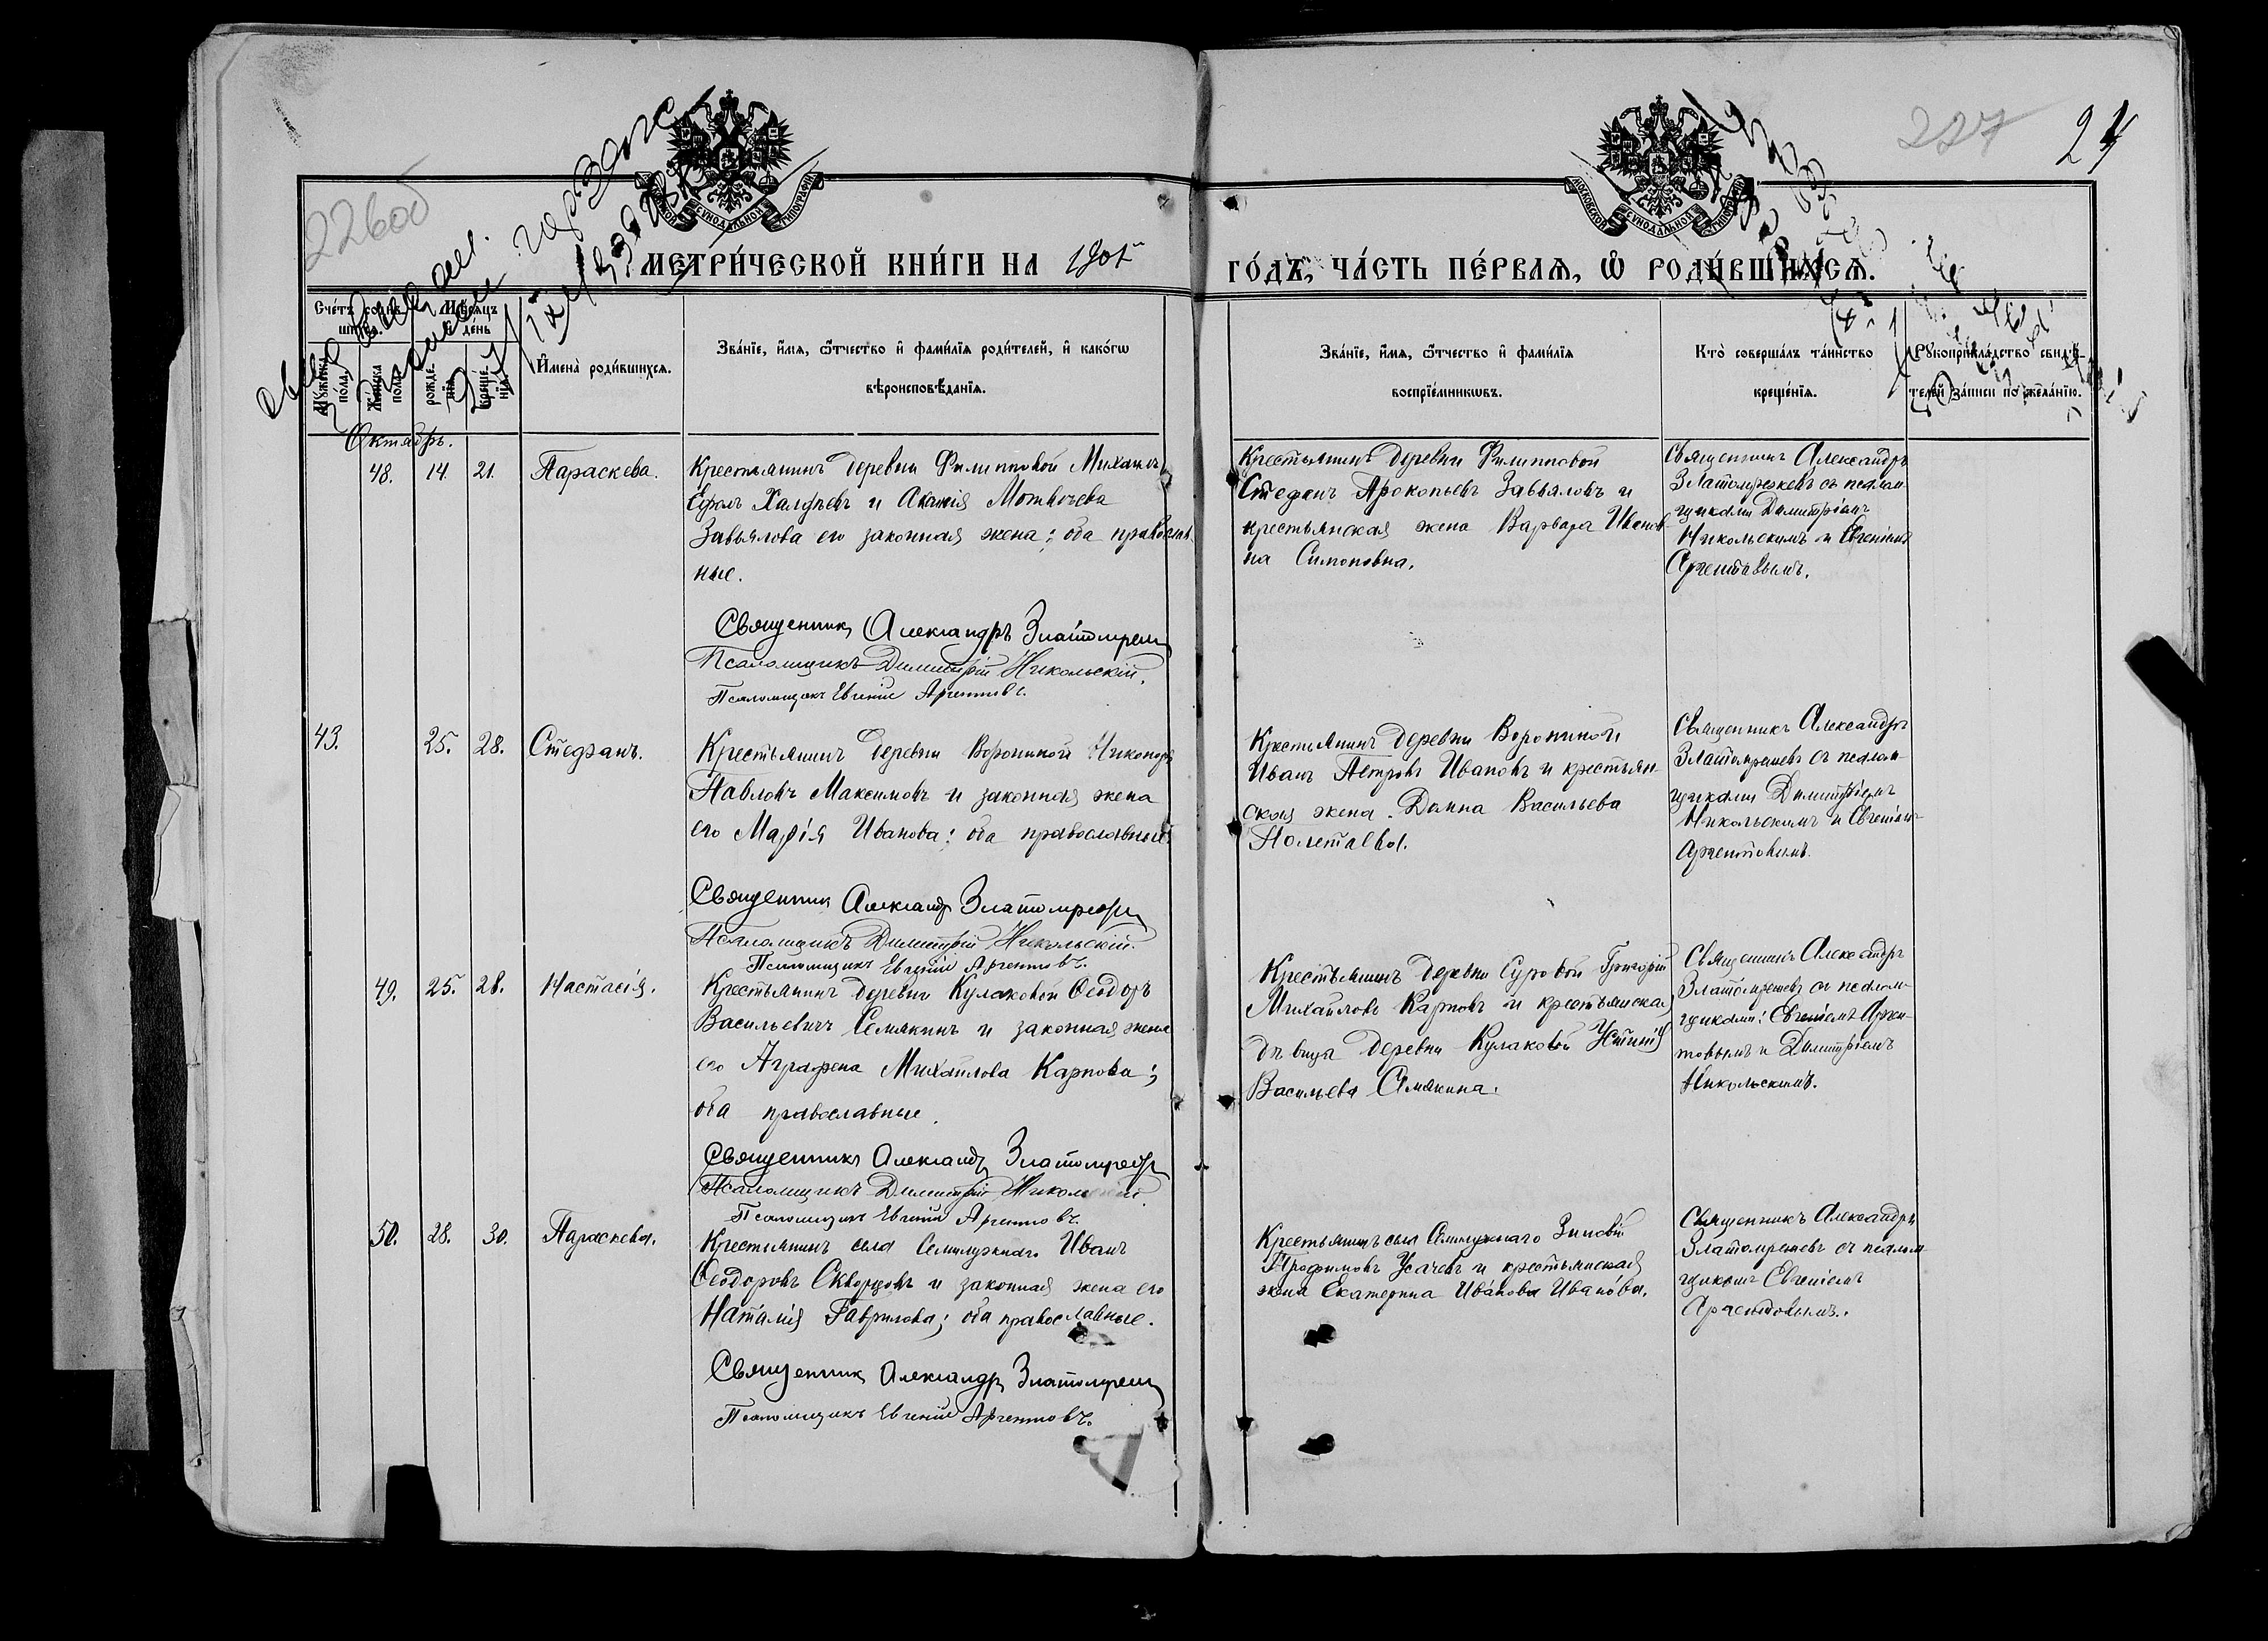 226об
227
24
МЕТРИ́ЧЕСКОЙ КНИ́ГИ НА 1901й
ГО́ДЪ, ЧА́СТЬ ПЕ́РВАЯ, Ѽ РОДИ́ВШИХСЯ.
МОСКОВСКОЙ СѴНОДАЛЬНОЙ ТИПОГРАФІИ
Сче́тъ роди́в-
шихся.
Мѣ́сяцъ
и де́нь
Му́жеска
по́ла.
Же́нска
по́ла.
рожде́-
нія.
креще́-
нія.
И҆мена̀ роди́вшихся.
Зва́нїе, и҆́мя, ѻ҆́тчество и҆ фами́лїя роди́телей, и҆ како́гѡ
вѣроисповѣ́данїя.
Зва́нїе, и҆́мя, ѻ҆́тчество и҆ фами́лїя
воспрїе́мникѡвъ.
Кто̀ соверша́лъ та́инство
креще́нїя.
Рꙋкоприкла́дство свидѣ́-
телей за́писи по жела́нїю.
Октябрь.
48. 14. 21. Параскева.
Крестьянинъ деревни Филипповой Михаилъ
Завьялова его законная жена; оба православ-
ные.
Священникъ Александръ Златомрежев
Псаломщикъ Димитрій Никольскій.
Псаломщикъ Евгеній Аргентовъ.
Крестьянинъ деревни Филипповой
Стефанъ Прокопьевъ Завьяловъ и
крестьянская жена Варвара Иванов-
на Симоновна.
Священникъ Александръ
Златомрежевъ съ псалом-
щиками Димитріемъ
Никольскимъ и Евгеніемъ
Аргентовымъ.
43. 25. 28. Стефанъ.
Крестьянинъ деревни Ворониной Никаноръ
Павловъ Максимовъ и законная жена
его Марія Иванова; оба православные.
Священник Александръ Златомрежев
Псаломщикъ Димитрій Никольскій.
Псаломщикъ Евгеній Аргентовъ.
Крестьянинъ деревни Ворониной
Иванъ Петровъ Ивановъ и крестьян-
ская жена Домна Васильева
Полетаева.
Священникъ Александръ
Златомрежевъ съ псалом-
щиками Димитріемъ
Никольскимъ и Евгеніемъ
Аргентовымъ.
49. 25. 28. Настасія.
Крестьянинъ деревни Кулаковой Ѳеодоръ
Васильевичъ Семякинъ и законная жена
его Аграфена Михаилова Карпова;
оба православные.
Священникъ Александръ Златомрежев
Псаломщикъ Димитрій Никольскій
Псаломщикъ Евгеній Аргентовъ.
Крестьянинъ деревни Суровой Григорій
Михайловъ Карповъ и крестьянская
дѣвица деревни Кулаковой Устинія
Васильева Семякина.
Священникъ Александръ
Златомрежевъ съ псалом-
щиками: Евгеніемъ Арген-
товымъ и Димитріемъ
Никольскимъ.
50. 28. 30. Параскева.
Крестьянинъ села Семилужнаго Иванъ
Ѳеодоровъ Скворцовъ и законная жена его
Наталія Гаврилова; оба православные.
Священникъ Александръ Златомрежев
Псаломщикъ Евгеній Аргентовъ.
Крестьянинъ села Семилужнаго Зиновій
Трофимовъ Усачевъ и крестьянская
жена Екатерина Иванова Иванова.
Священникъ Александръ
Златомрежевъ съ псалом-
щикомъ Евгеніемъ
Аргентовымъ.